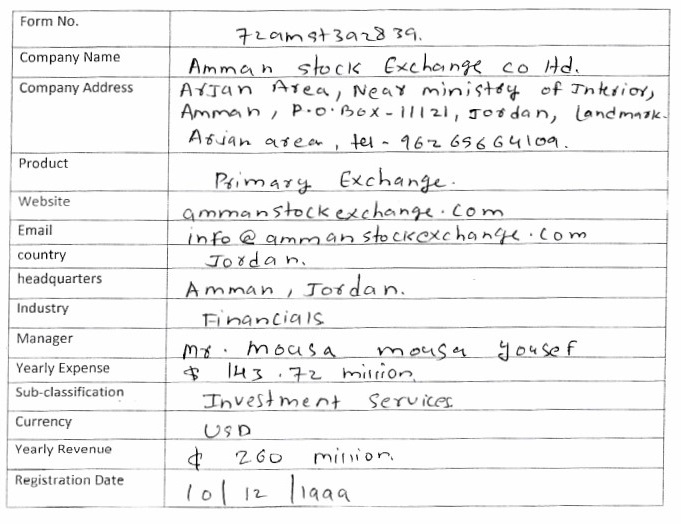 Form No. 72amst3a2839.
Company Name Amman stock Exchange co ltd.
Company Address Arjan Area, Near ministry of Interior,
Amman, P.O.Box-11121, Jordan, Landmark-
Arjan area, tel - 962 65664109.
Product Primary Exchange.
Website ammanstockexchange.com
Email info@ammanstockexchange.com
country Jordan.
headquarters Amman, Jordan.
Industry Financials
Manager Mr. Mousa mousa yousef
Yearly Expense $ 143.72 million
Sub-classification Investment Services
Currency USD
Yearly Revenue $ 260 million.
Registration Date 10/12/1999